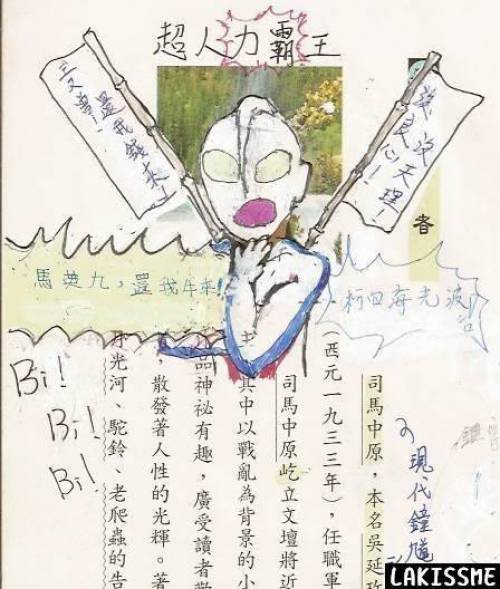 超人力霸王
還我錢來！
沒良心！
沒天理！
者
馬英九，還我牛來！
柯四海光波
Bi!
Bi!
Bi!
司馬中原，本名吳延玫
(西元一九三三年)，任職軍
司馬中原屹立文壇將近
其中以戰亂為背景的小
品神祕有趣，廣受讀者歡
散發著人性的光輝。著
光河、駝鈴、老爬蟲的告
現代鐘馗
LAKISSME